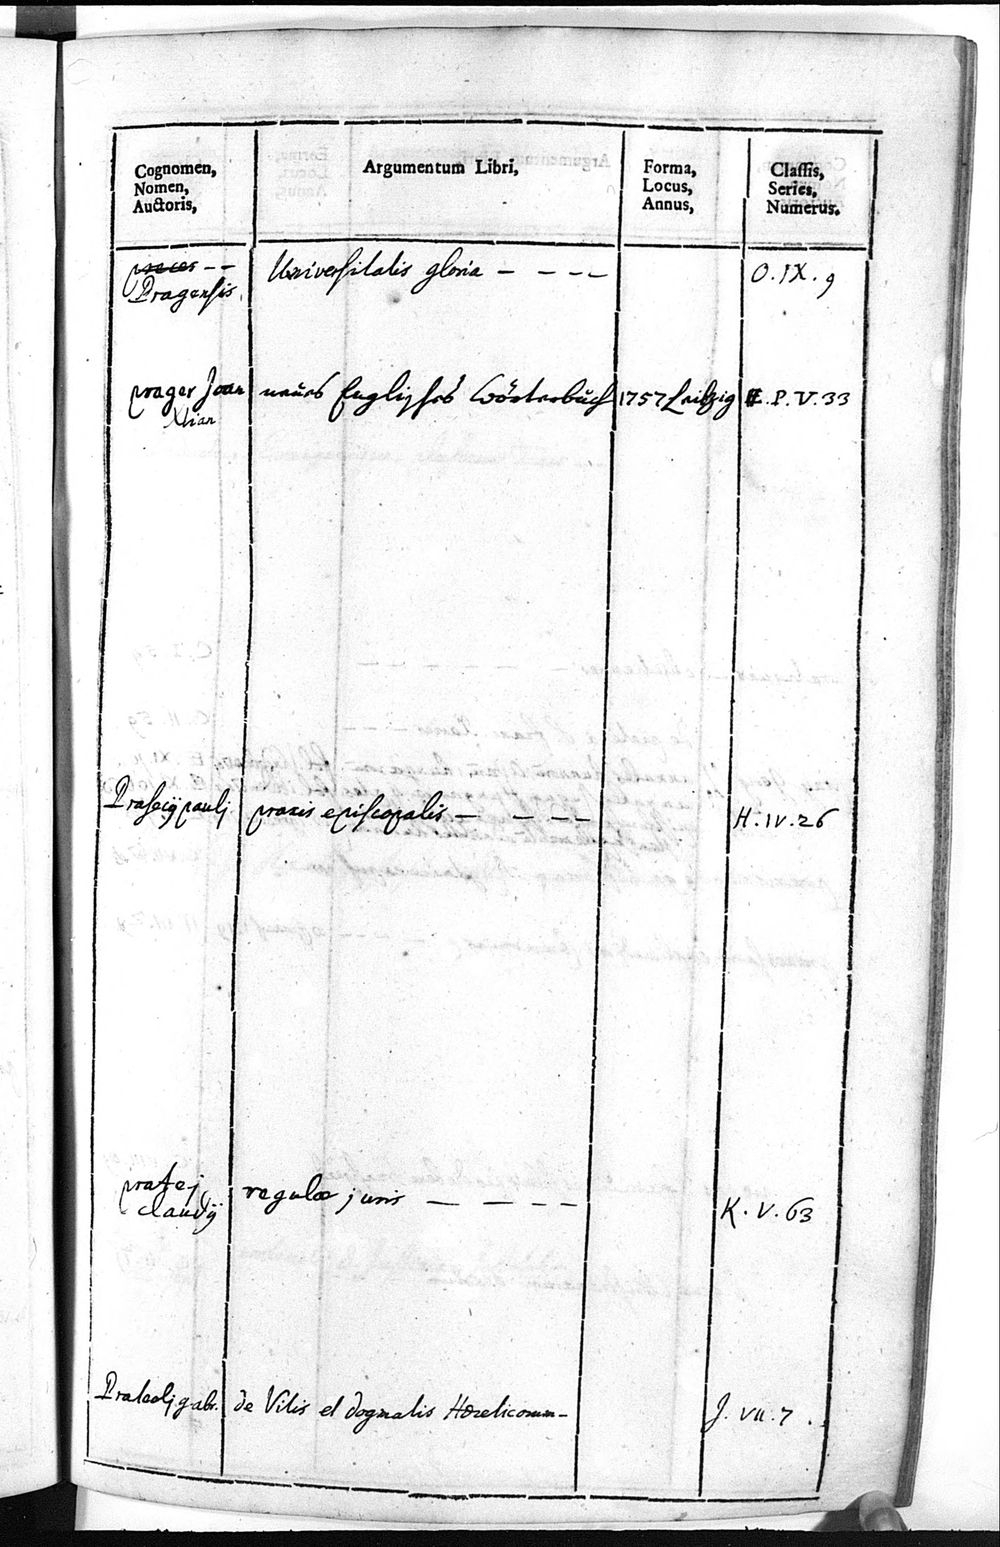 Cognomen,
Nomen,
Auctoris,
Argumentum Libri,
Forma,
Locus,
Annus,
Classis,
Series,
Numerus.
Pragensis Universitatis gloria - - - - O. IX. 9
prager Joan neües Englisches Wörterbüch 1757 Leibzig E. P. V. 33
Xtian
Praseÿ paulj praxis episcopalis - - - - H. IV. 26
pratej regulæ juris - - - - K. V. 63
claudÿ
Prateolj gabr. de Vitis et dogmatis Hæreticorum - J. VII. 7.